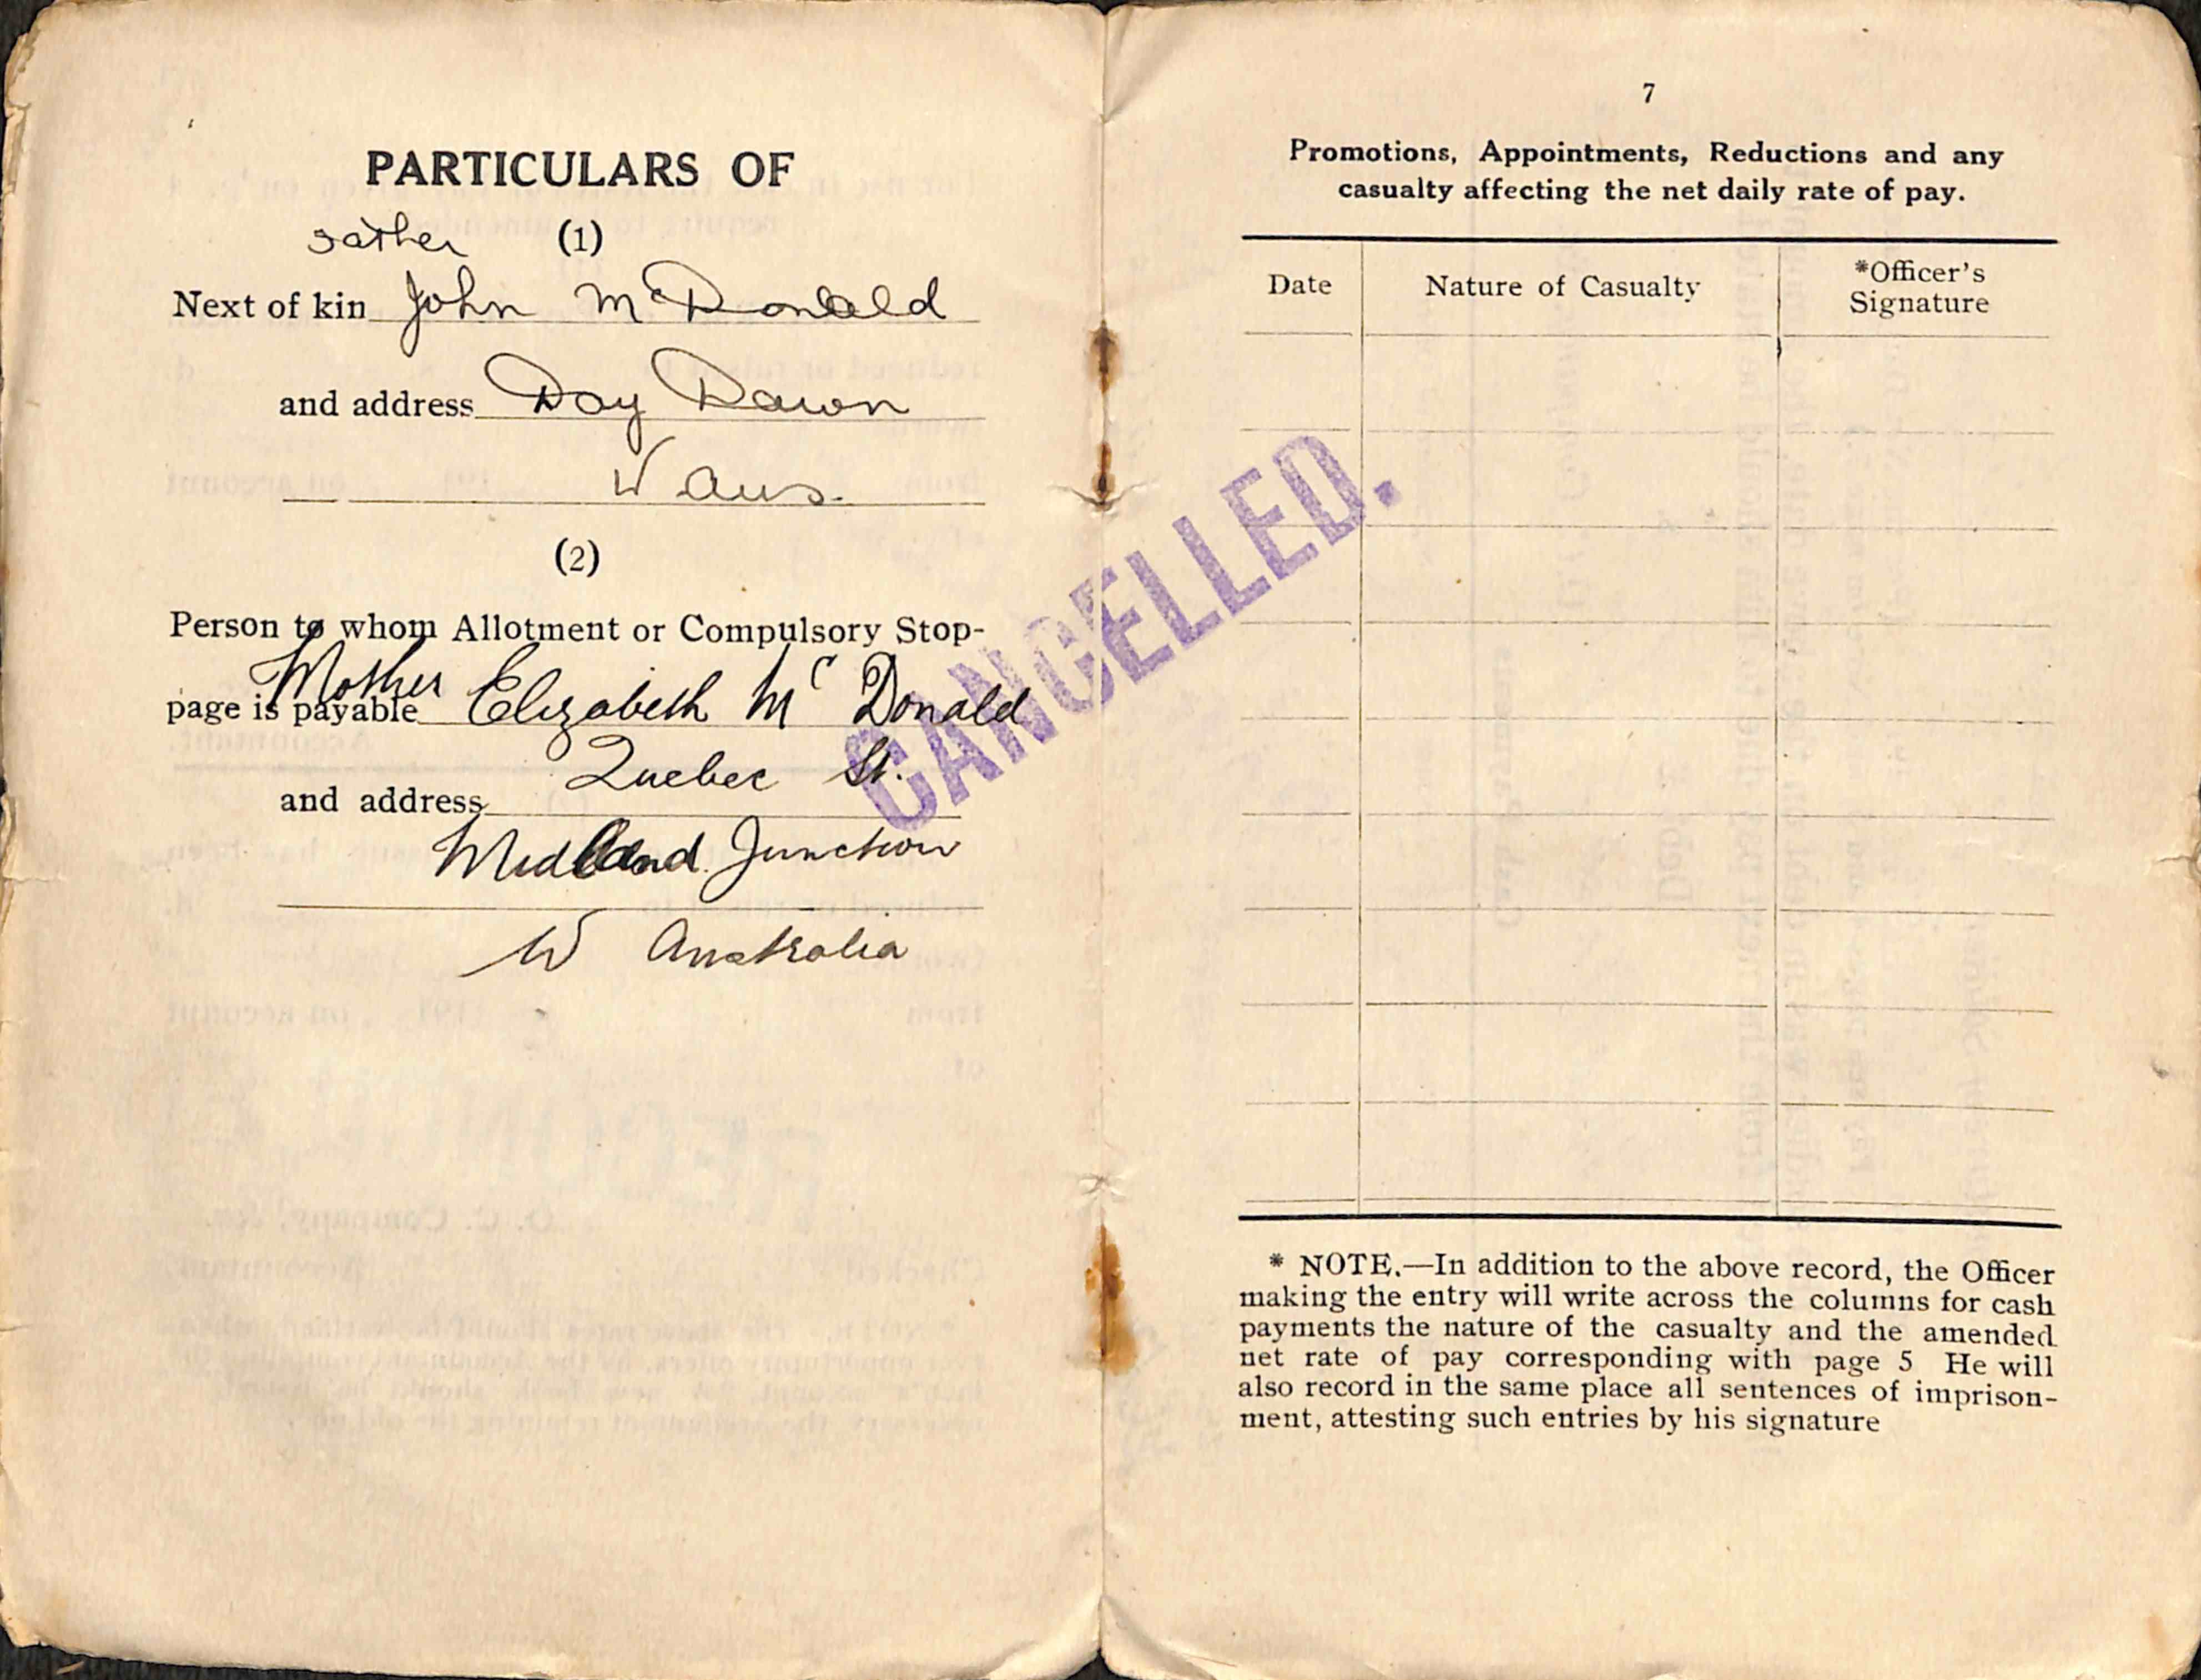 PARTICULARS OF
Father (1)
Next of kin John McDonald
and address Day Dawn
W Aus.
(2)
Person to whom Allotment or Compulsory Stop-
Mother
page is payable Elizabeth McDonald
Quebec St.
and address
Midland Junction
W Australia
CANCELLED.
7
Promotions, Appointments, Reductions and any
casualty affecting the net daily rate of pay.
Date Nature of Casualty *Officer's Signature
* NOTE.—In addition to the above record, the Officer
making the entry will write across the columns for cash
payments the nature of the casualty and the amended
net rate of pay corresponding with page 5 He will
also record in the same place all sentences of imprison-
ment, attesting such entries by his signature